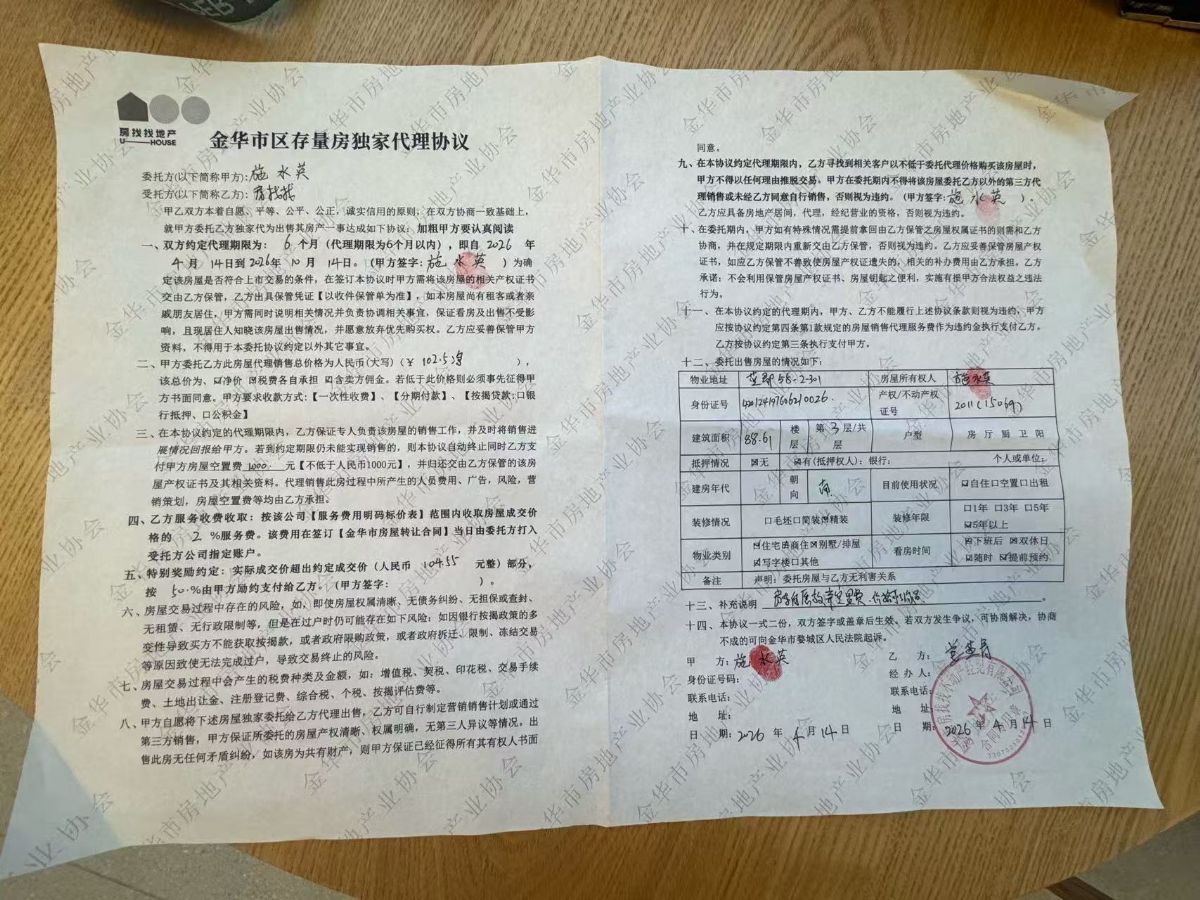 房找找地产
U HOUSE
金华市区存量房独家代理协议
委托方(以下简称甲方):施水英
受托方(以下简称乙方):房找找
甲乙双方本着自愿、平等、公平、公正,诚实信用的原则,在双方协商一致基础上,
就甲方委托乙方独家代为出售其房产一事达成如下协议:加粗甲方要认真阅读
一、双方约定代理期限为: 6 个月(代理期限为6个月以内),即自2026 年
4月14日到2026年10月14日。(甲方签字:施水英)为确
定该房屋是否符合上市交易的条件,在签订本协议时甲方需将该房屋的相关产权证书
交由乙方保管,乙方出具保管凭证【以收件保管单为准】,如本房屋尚有租客或者亲
戚朋友居住,甲方需同时说明相关情况并负责协调相关事宜,保证看房及出售不受影
响,且现居住人知晓该房屋出售情况,并愿意放弃优先购买权。乙方应妥善保管甲方
资料,不得用于本委托协议约定以外其它事宜。
二、甲方委托乙方此房屋代理销售总价格为人民币(大写)(¥ 102.5 ),
该总价为、☑净价 ☑税费各自承担 ☑含卖方佣金。若低于此价格则必须事先征得甲
方书面同意。甲方要求收款方式:【一次性收费】、【分期付款】、【按揭贷款:口银
行抵押、口公积金】
三、在本协议约定的代理期限内,乙方保证专人负责该房屋的销售工作,并及时将销售进
展情况回报给甲方。若到约定期限仍未能实现销售的,则本协议自动终止同时乙方支
付甲方房屋空置费 1000 元【不低于人民币1000元】,并归还交由乙方保管的该房
屋产权证书及其相关资料。代理销售此房过程中所产生的人员费用、广告,风险,营
销策划,房屋空置费等均由乙方承担。
四、乙方服务收费收取:按该公司【服务费用明码标价表】范围内收取房屋成交价
格的 2 %服务费。该费用在签订【金华市房屋转让合同】当日由委托方打入
受托方公司指定账户。
五、特别奖励约定:实际成交价超出约定成交价(人民币 104.55 元整)部分,
按 50 %由甲方励约支付给乙方。(甲方签字: )。
六、房屋交易过程中存在的风险,如,即使房屋权属清晰、无债务纠纷、无担保或查封、
无租赁、无行政限制等,但是在过户时仍可能存在如下风险:如因银行按揭政策的多
变性导致买方不能获取按揭款,或者政府限购政策,或者政府拆迁、限制、冻结交易
等原因致使无法完成过户,导致交易终止的风险。
七、房屋交易过程中会产生的税费种类及金额,如:增值税、契税、印花税、交易手续
费、土地出让金、注册登记费、综合税、个税、按揭评估费等。
八、甲方自愿将下述房屋独家委托给乙方代理出售,乙方可自行制定营销销售计划或通过
第三方销售,甲方保证所委托的房屋产权清晰、权属明确,无第三人异议等情况,出
售此房无任何矛盾纠纷,如该房为共有财产,则甲方保证已经征得所有其有权人书面
同意。
九、在本协议约定代理期限内,乙方寻找到相关客户以不低于委托代理价格购买该房屋时,
甲方不得以任何理由推脱交易。甲方在委托期内不得将该房屋委托乙方以外的第三方代
理销售或未经乙方同意自行销售,否则视为违约。(甲方签字:施水英)。
乙方应具备房地产居间,代理,经纪营业的资格,否则视为违约。
十、在委托期内,甲方如有特殊情况需提前拿回由乙方保管之房屋权属证书的则需和乙方
协商,并在规定期限内重新交由乙方保管,否则视为违约。乙方应妥善保管房屋产权
证书,如应乙方保管不善致使房屋产权证遗失的,相关的补办费用由乙方承担。乙方
承诺:不会利用保管房屋产权证书、房屋钥匙之便利,实施有损甲方合法权益之违法
行为。
十一、在本协议约定的代理期内,甲方、乙方不能履行上述协议条款则视为违约,甲方
应按协议约定第四条第1款规定的房屋销售代理服务费作为违约金执行支付乙方。
乙方按协议约定第三条执行支付甲方。
十二、委托出售房屋的情况如下:
物业地址 58-2-301 房屋所有权人 施水英
身份证号 产权/不动产权证号 2011(15069)
建筑面积 88.61 楼层 第3层/共 层 户型 房 厅 厨 卫 阳
抵押情况 ☑无 ☑有(抵押权人):银行: 个人或单位:
建房年代 朝向 南 目前使用状况 ☑自住口空置口出租
装修情况 口毛坯口简装☑精装 装修年限 口1年 口3年 口5年 ☑5年以上
物业类别 ☑住宅☑商住☑别墅/排屋 ☑写字楼口其他 看房时间 ☑下班后 ☑双休日 ☑随时 ☑提前预约
备注 声明:委托房屋与乙方无利害关系
十三、补充说明
十四、本协议一式二份,双方签字或盖章后生效。若双方发生争议,可协商解决,协商
不成的可向金华市婺城区人民法院起诉。
甲 方:施水英 乙 方:
身份证号码: 经 办 人:
联系电话: 联系电话:
地 址: 地 址:
日 期:2026 年 4 月 14 日 日 期:2026 年 4 月 14 日
金华市房地产业协会